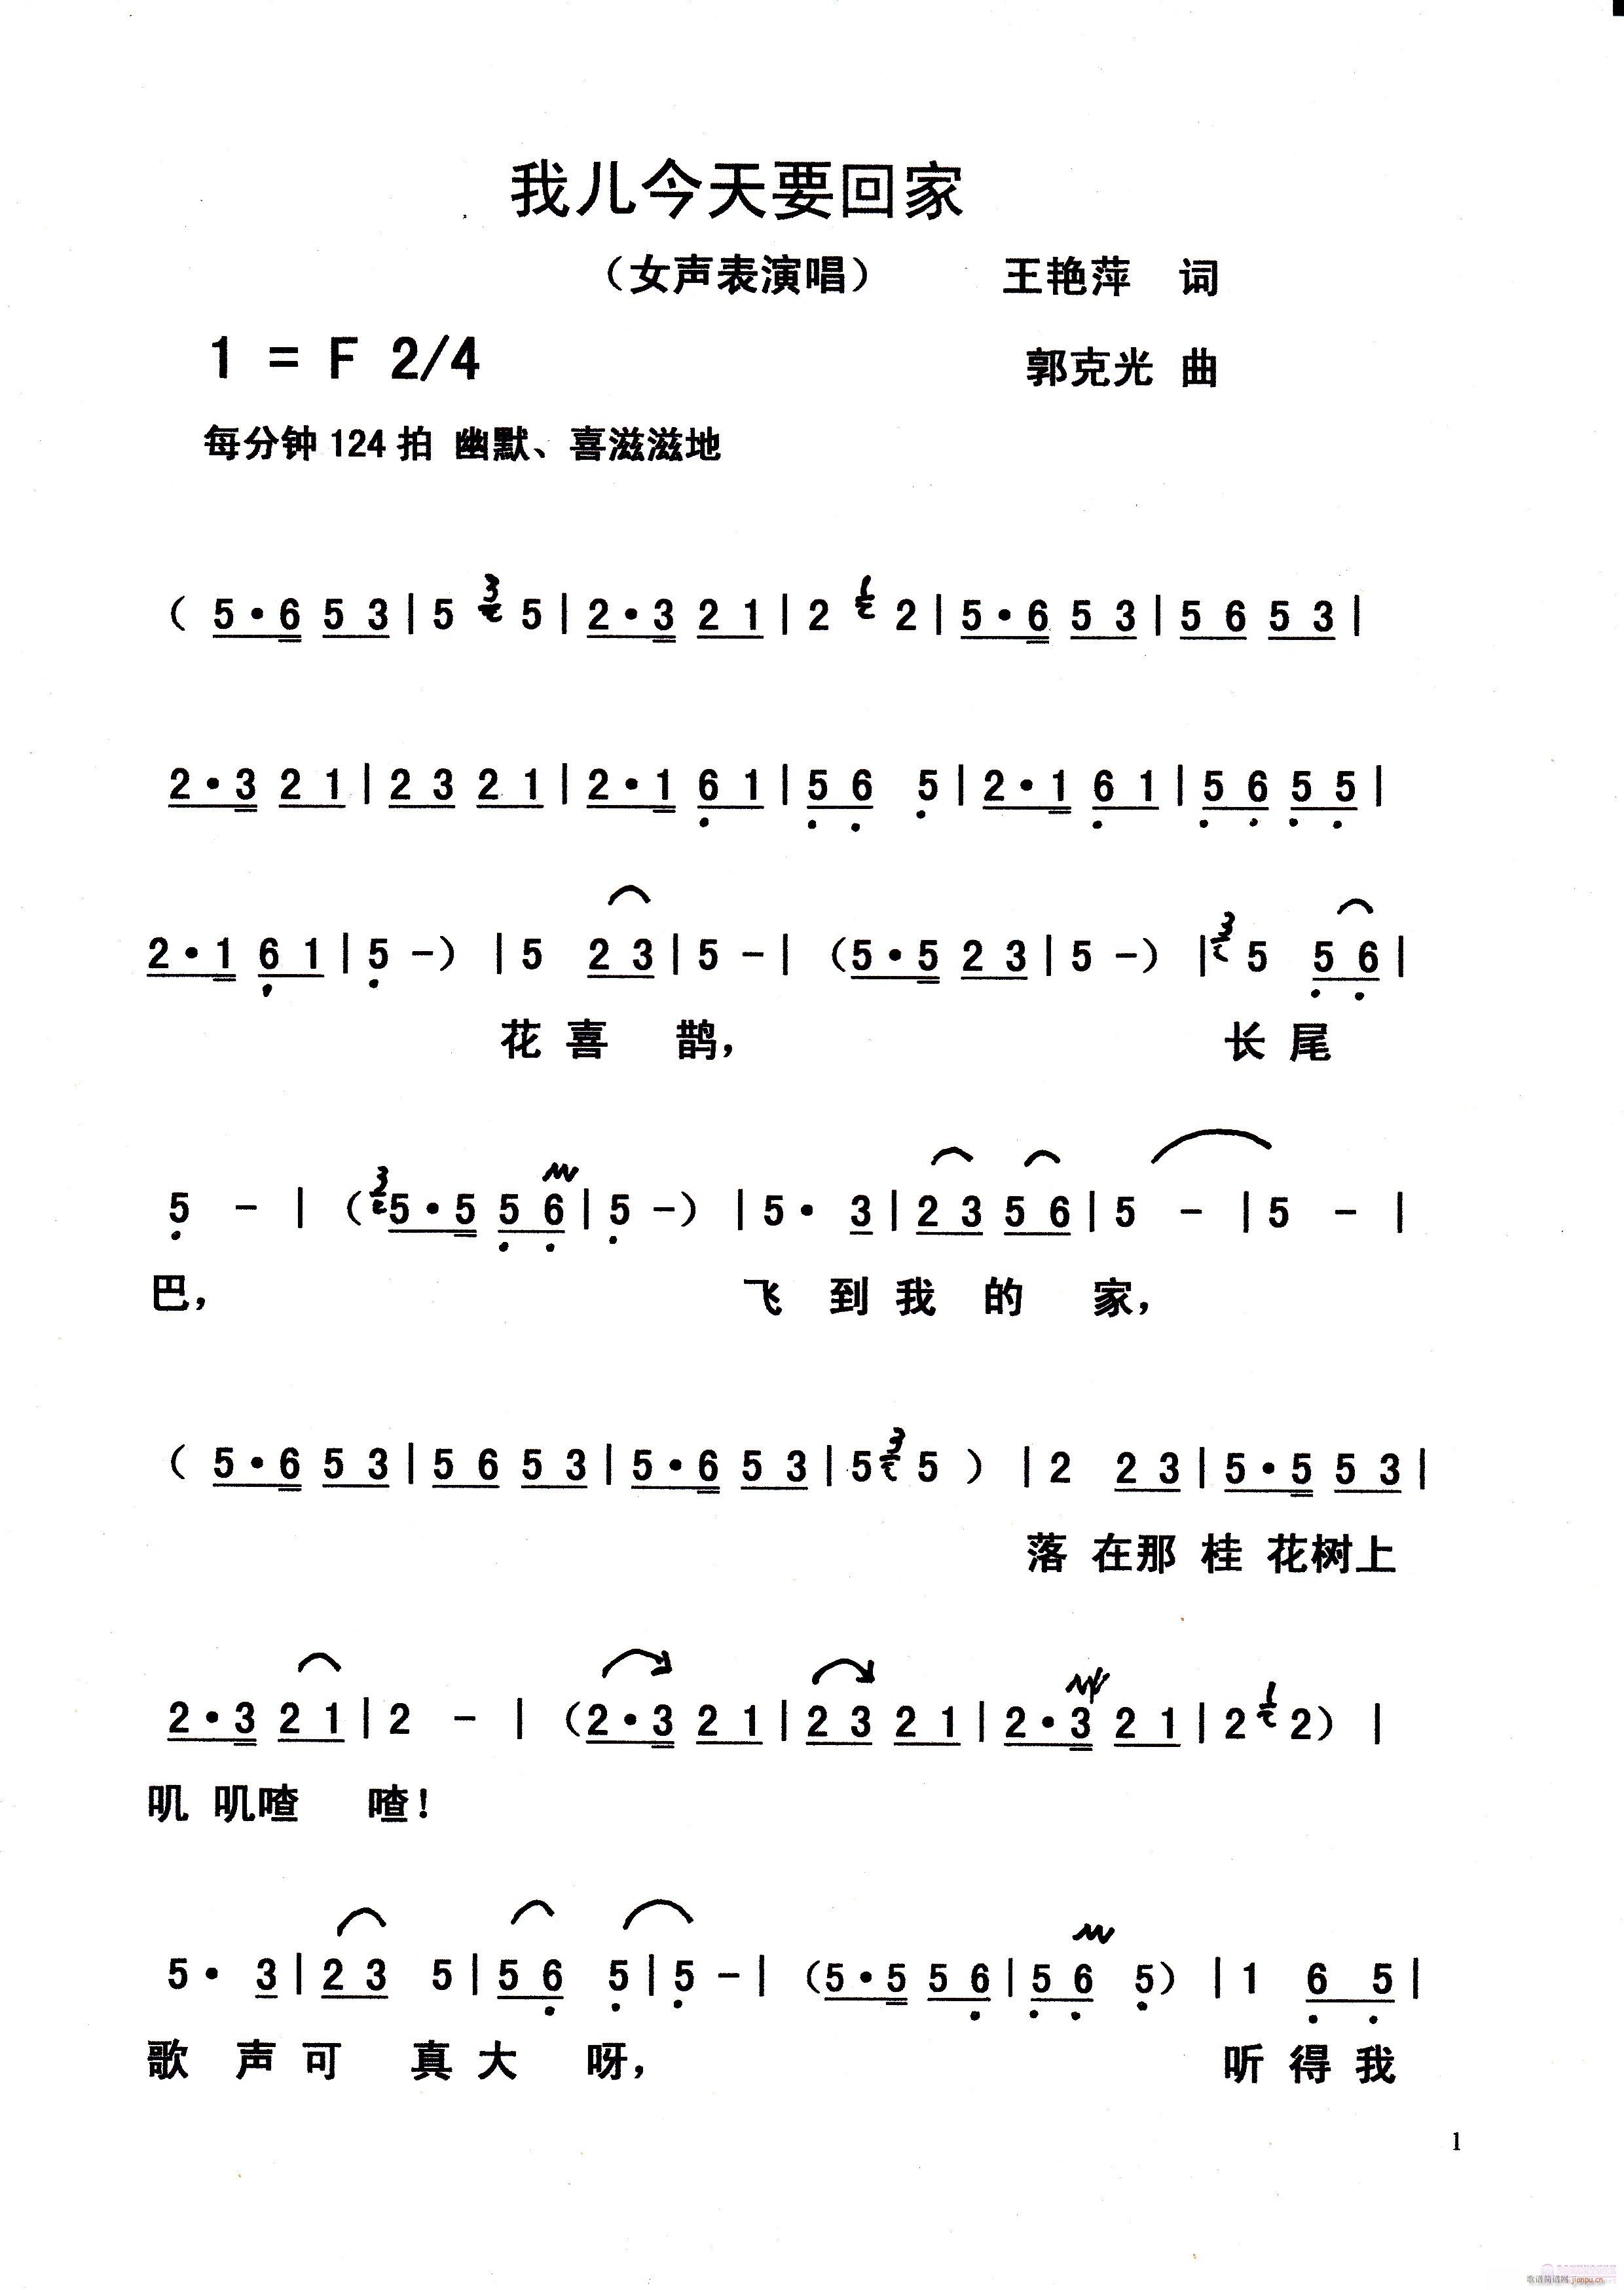 我儿今天要回家
（女声表演唱） 王艳萍 词
1 = F 2/4 郭克光 曲
每分钟124拍 幽默、喜滋滋地
（5·6 5 3|5 3 5|2·3 2 1|2 1 2|5·6 5 3|5 6 5 3|
2·3 2 1|2 3 2 1|2·1 6 1|5 6 5|2·1 6 1|5 6 5 5|
2·1 6 1|5 -）|5 2 3|5 -|（5·5 2 3|5 -）|3 5 5 6|
花 喜 鹊， 长 尾
5 - |（3 5·5 5 6|5 -）|5· 3|2 3 5 6|5 - |5 - |
巴， 飞 到 我 的 家，
（5·6 5 3|5 6 5 3|5·6 5 3|5 3 5 ）|2 2 3|5·5 5 3|
落 在那 桂 花树上
2·3 2 1|2 - |（2·3 2 1|2 3 2 1|2·3 2 1|2 1 2）|
叽 叽喳 喳！
5· 3|2 3 5|5 6 5|5 -|（5·5 5 6|5 6 5）|1 6 5|
歌 声 可 真 大 呀， 听 得 我
1
歌谱简谱网 jianpu.cn